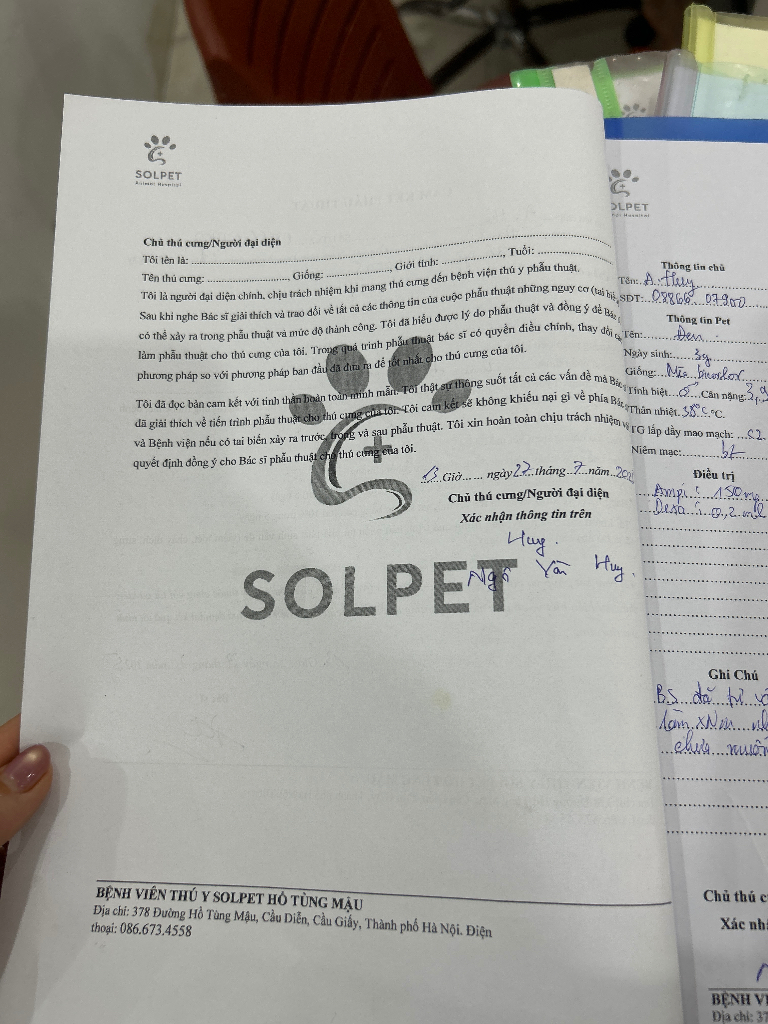 SOLPET
Animal Hospital
Chủ thú cưng/Người đại diện
Tôi tên là:
Tên thú cưng: , Giống: , Giới tính: , Tuổi:
Tôi là người đại diện chính, chịu trách nhiệm khi mang thú cưng đến bệnh viện thú y phẫu thuật.
Sau khi nghe Bác sĩ giải thích và trao đổi về tất cả các thông tin của cuộc phẫu thuật những nguy cơ (tai biến
có thể xảy ra trong phẫu thuật và mức độ thành công. Tôi đã hiểu được lý do phẫu thuật và đồng ý để Bác
làm phẫu thuật cho thú cưng của tôi. Trong quá trình phẫu thuật bác sĩ có quyền điều chỉnh, thay đổi
phương pháp so với phương pháp ban đầu đã đưa ra để tốt nhất cho thú cưng của tôi.
Tôi đã đọc bản cam kết với tinh thần hoàn toàn minh mẫn. Tôi thật sự thông suốt tất cả các vấn đề mà Bác
đã giải thích về tiến trình phẫu thuật cho thú cưng của tôi. Tôi cam kết sẽ không khiếu nại gì về phía Bác
và Bệnh viện nếu có tai biến xảy ra trước, trong và sau phẫu thuật. Tôi xin hoàn toàn chịu trách nhiệm
quyết định đồng ý cho Bác sĩ phẫu thuật cho thú cưng của tôi.
Giờ...... ngày 27 tháng 7 năm 202
Chủ thú cưng/Người đại diện
Xác nhận thông tin trên
Huy.
Ngô Văn Huy.
SOLPET
BỆNH VIỆN THÚ Y SOLPET HỒ TÙNG MẬU
Địa chỉ: 378 Đường Hồ Tùng Mậu, Cầu Diễn, Cầu Giấy, Thành phố Hà Nội. Điện
thoại: 086.673.4558
OLPET
Thông tin chủ
Tên: A. Huy
SĐT: 07900
Thông tin Pet
Tên: Đen
Ngày sinh: 3y
Giống: Mèo
Tính biệt: Cân nặng:
Thân nhiệt: 38°C °C.
TG lấp đầy mao mạch: <2
Niêm mạc: bt
Điều trị
Ampi : 150mg
Dexa : 0,2 ml
Ghi Chú
BS đã tư
làm xN
chưa muốn
Chủ thú c
Xác nhậ
BỆNH VI
Địa chỉ: 37